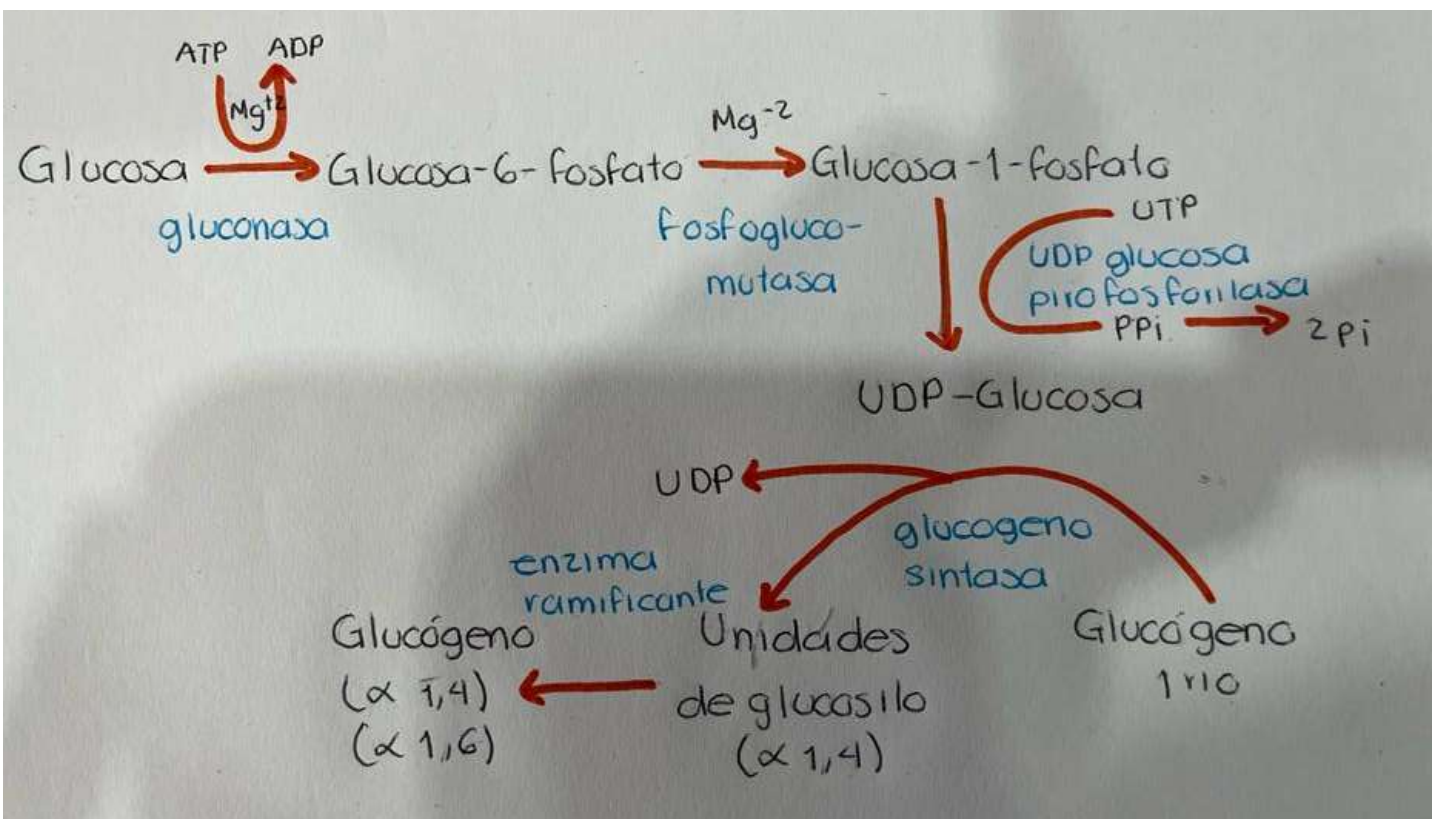 ATP ADP
Mg+2
Mg-2
Glucosa Glucosa-6-fosfato Glucosa-1-fosfato
gluconasa
fosfogluco-
mutasa
UTP
UDP glucosa
pirofosforilasa
PPi 2 Pi
UDP-Glucosa
UDP
glucogeno
sintasa
enzima
ramificante
Glucógeno
(α 1,4)
(α 1,6)
Unidades
de glucosilo
(α 1,4)
Glucógeno
1rio